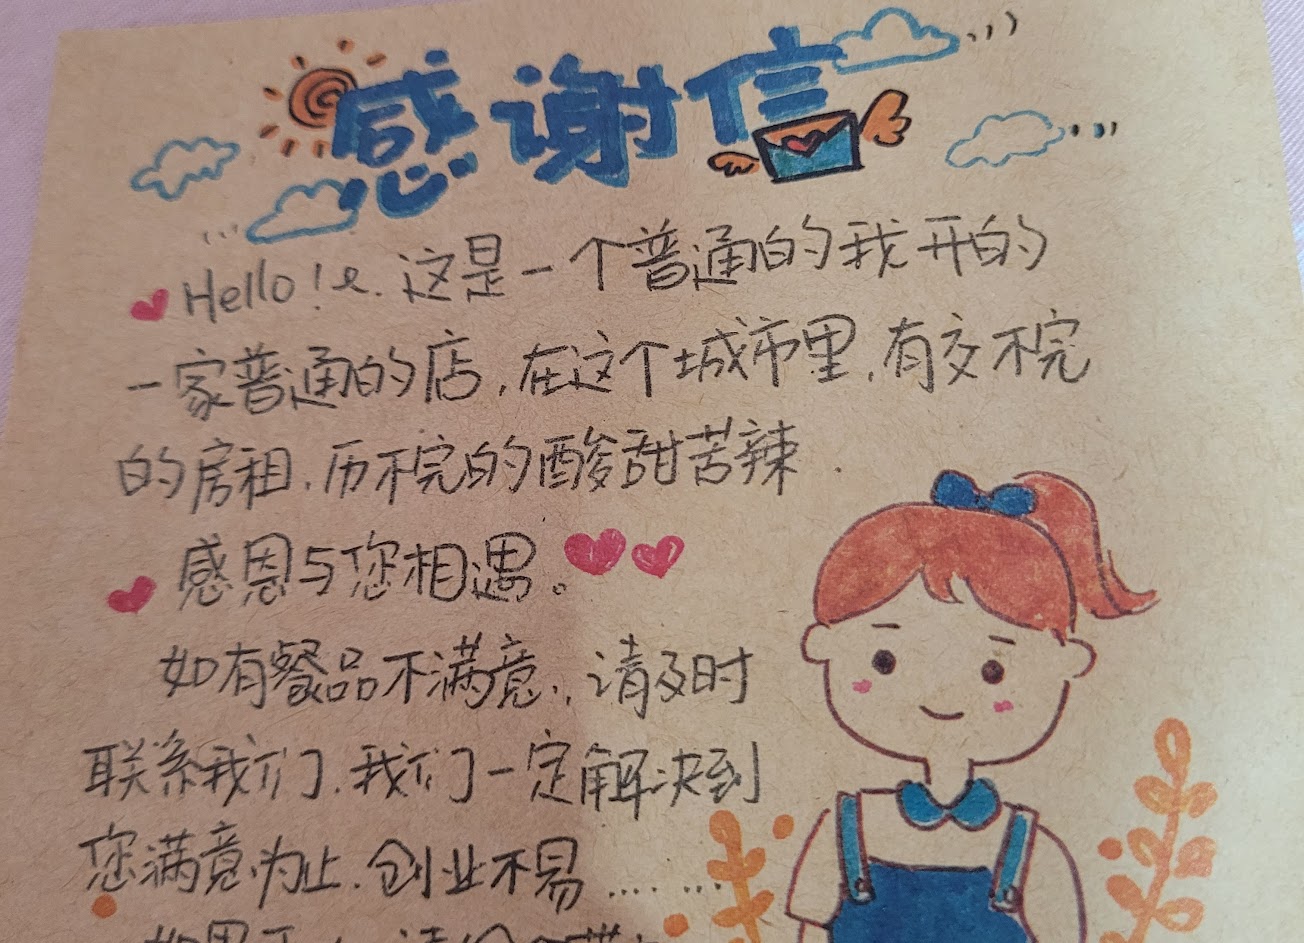 感谢信
Hello!这是一个普通的我开的
一家普通的店,在这个城市里,有交不完
的房租,历不完的酸甜苦辣.
感恩与您相遇。
如有餐品不满意,请及时
联系我们,我们一定解决到
您满意为止,创业不易......